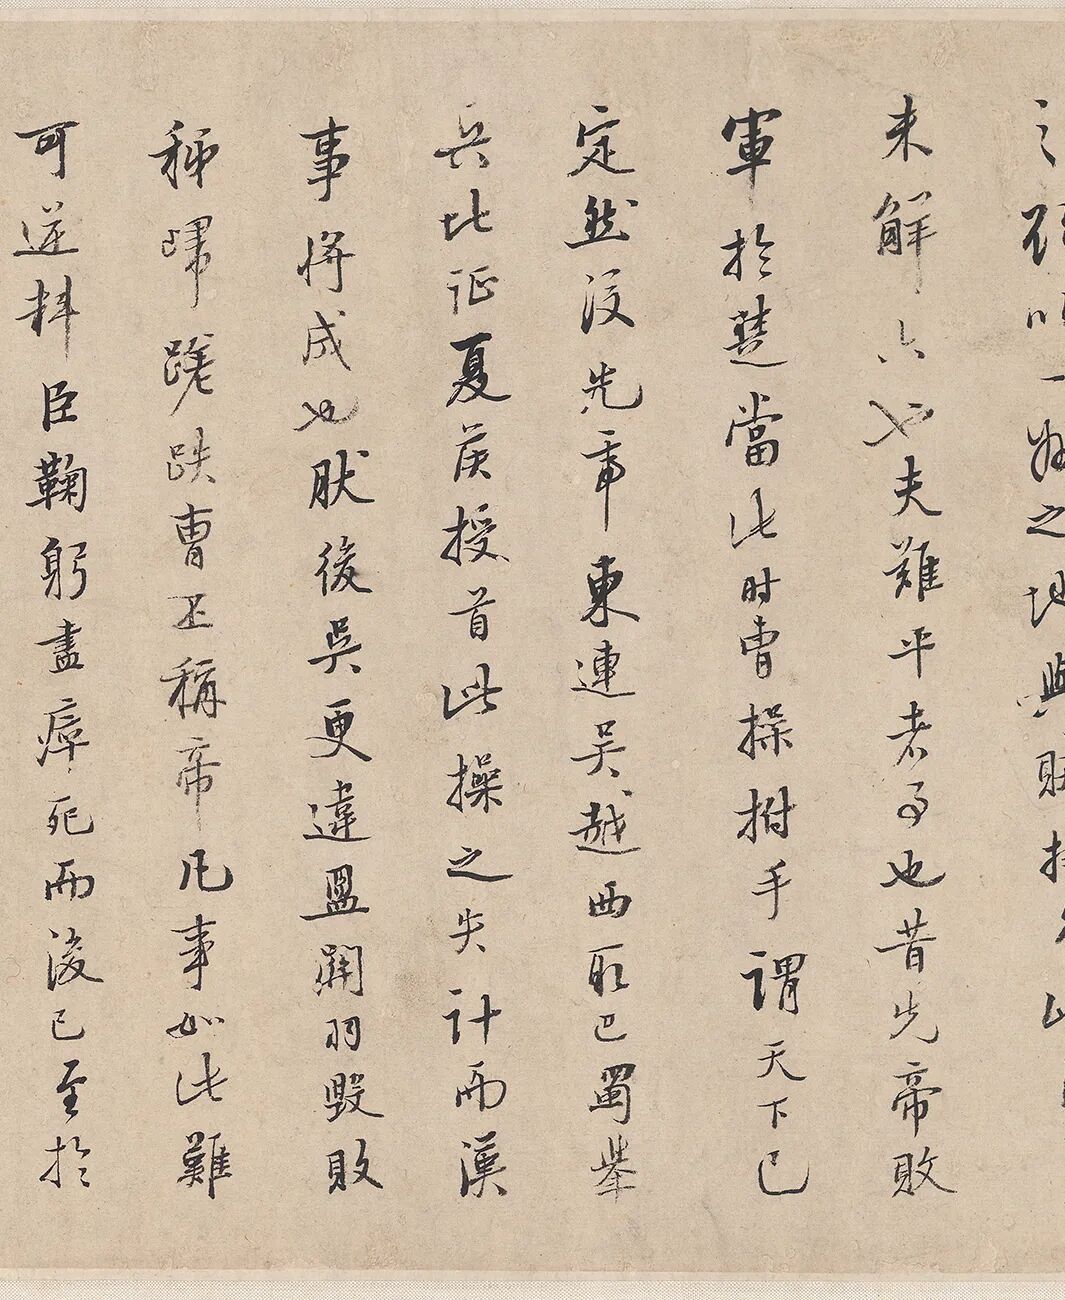 之欲以一州之地與賊持久此
未解六也夫難平者事也昔先帝敗
軍於楚當此时曹操拊手謂天下已
定然後先帝東連吳越西取巴蜀舉
兵北征夏侯授首此操之失計而漢
事將成也然後吳更違盟關羽毀敗
秭歸蹉跌曹丕稱帝凡事如此難
可逆料臣鞠躬盡瘁死而後已至於